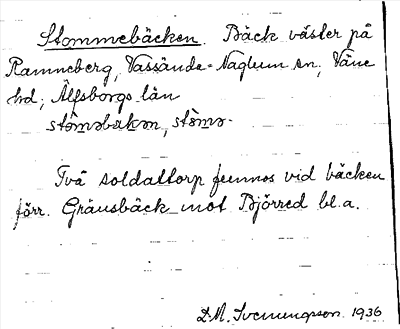 Stommebäcken. Bäck väster på
Ramneberg, Vassända-Naglum sn, Väne
hd, Älfsborgs län
stômǝbakǝn, stômǝ-
Två soldattorp funnos vid bäcken
förr. Gränsbäck mot Björred bl.a.
D.M. Svenungsson 1936